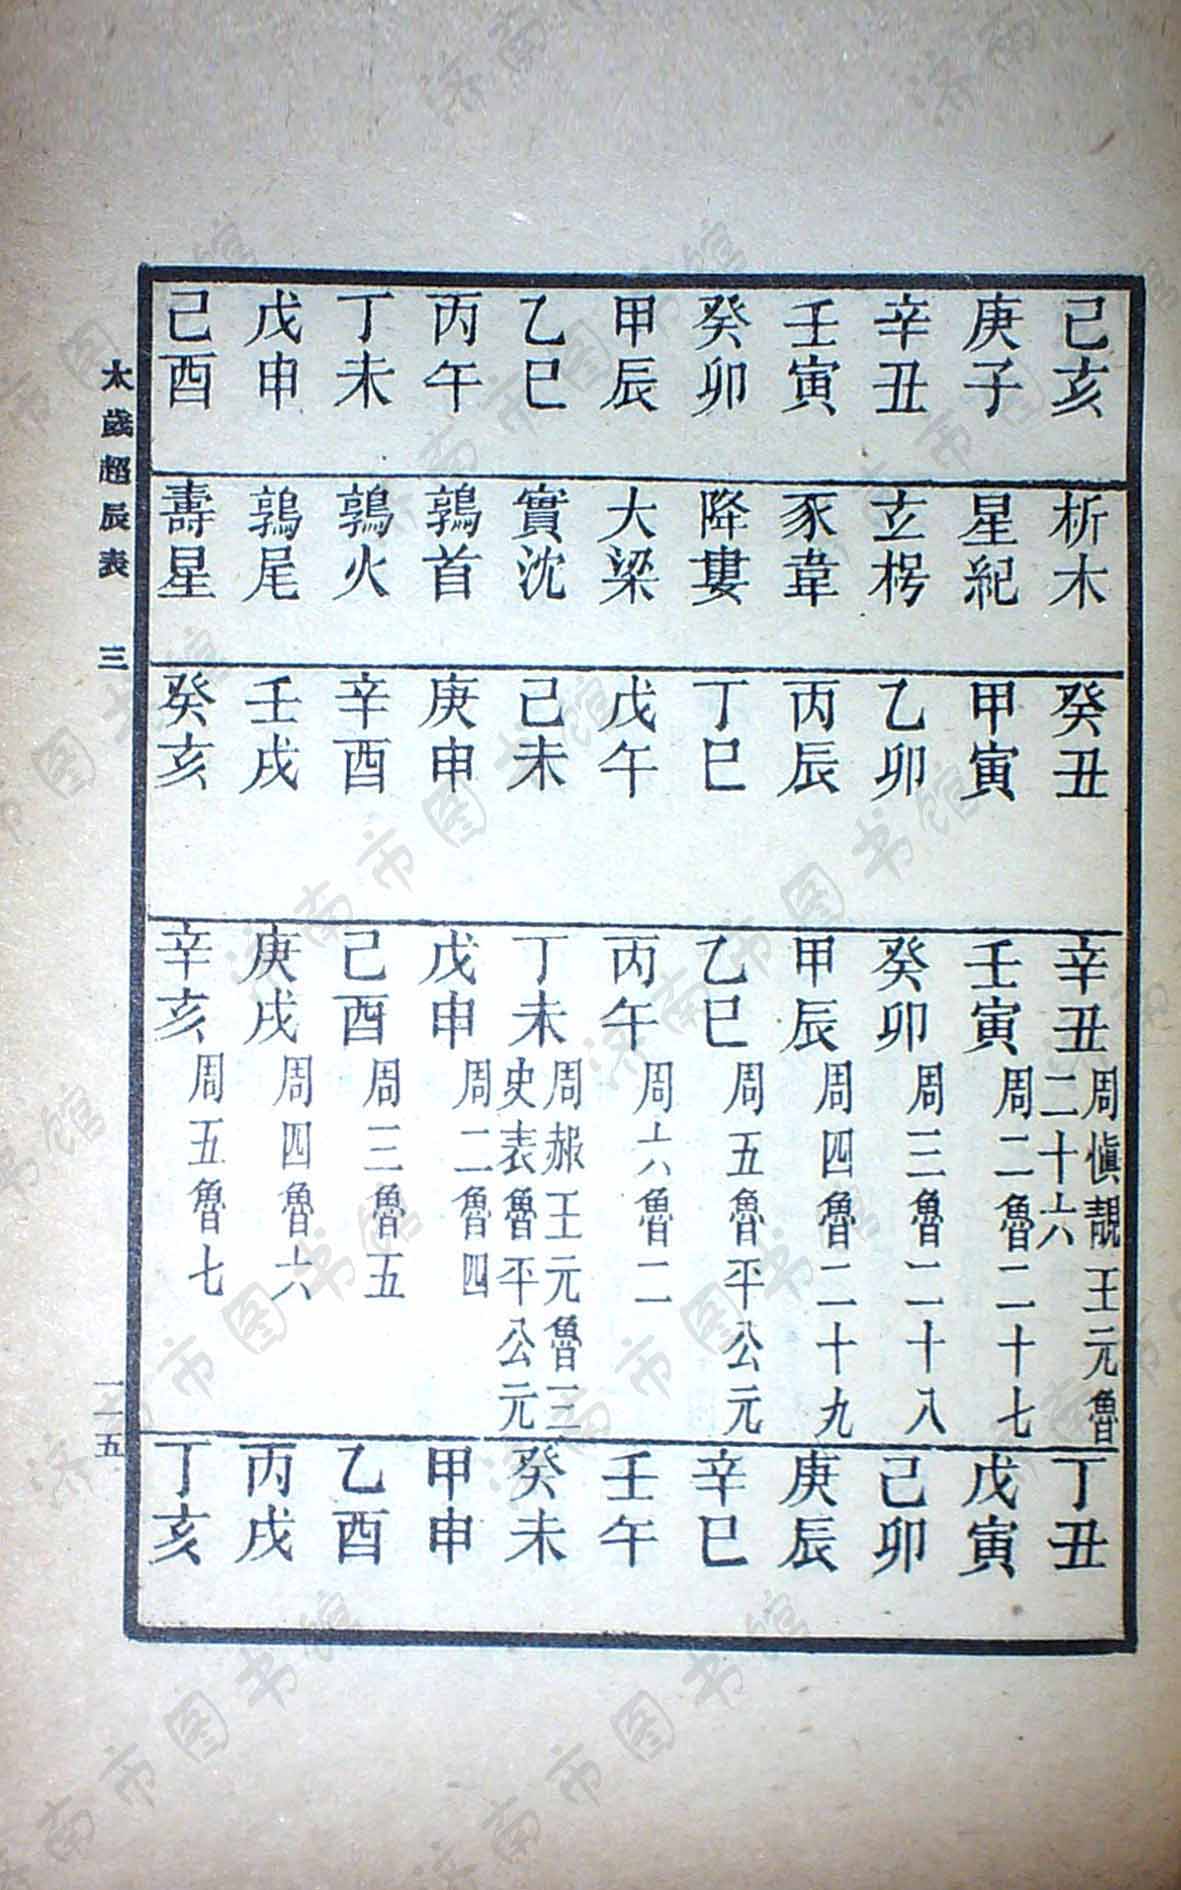 己亥 析木 癸丑 辛丑 周愼靚王元魯二十六 丁丑
庚子 星紀 甲寅 壬寅 周二魯二十七 戊寅
辛丑 玄枵 乙卯 癸卯 周三魯二十八 己卯
壬寅 豕韋 丙辰 甲辰 周四魯二十九 庚辰
癸卯 降婁 丁巳 乙巳 周五魯平公元 辛巳
甲辰 大梁 戊午 丙午 周六魯二 壬午
乙巳 實沈 己未 丁未 周赧王元魯三史表魯平公元 癸未
丙午 鶉首 庚申 戊申 周二魯四 甲申
丁未 鶉火 辛酉 己酉 周三魯五 乙酉
戊申 鶉尾 壬戌 庚戌 周四魯六 丙戌
己酉 壽星 癸亥 辛亥 周五魯七 丁亥
太歲超辰表 三 一一五
济南市图书馆